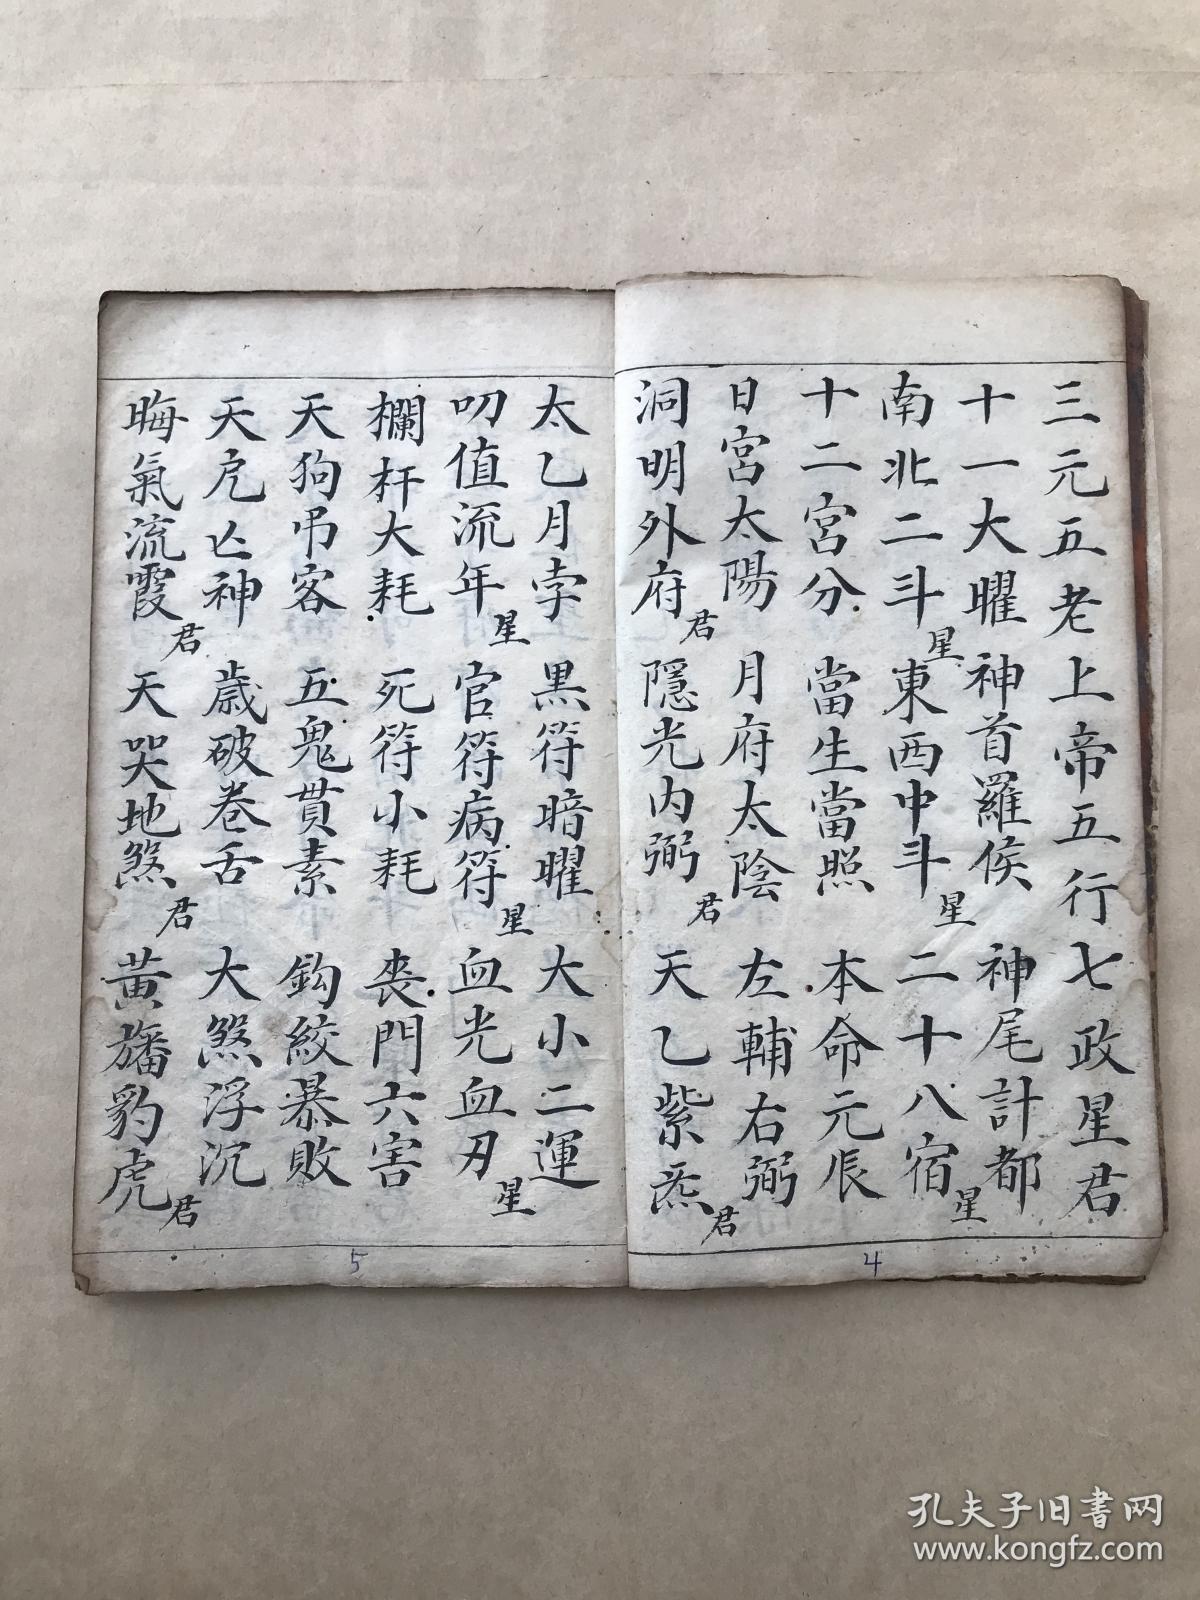 三元五老上帝五行七政星君
十一大曜神首羅侯神尾計都
南北二斗星東西中斗星二十八宿星
十二宮分當生當照本命元辰
日宮太陽月府太陰左輔右弼
洞明外府君隱光内弼君天乙紫炁君
4
太乙月孛黑符暗曜大小二運
叨值流年星官符病符星血光血刃星
欄杆大耗死符小耗喪門六害
天狗弔客五鬼貫索鈎絞暴敗
天虎亡神歲破卷舌大煞浮沉
晦氣流霞君天哭地煞君黃旛豹虎君
5
孔夫子旧書网
www.kongfz.com